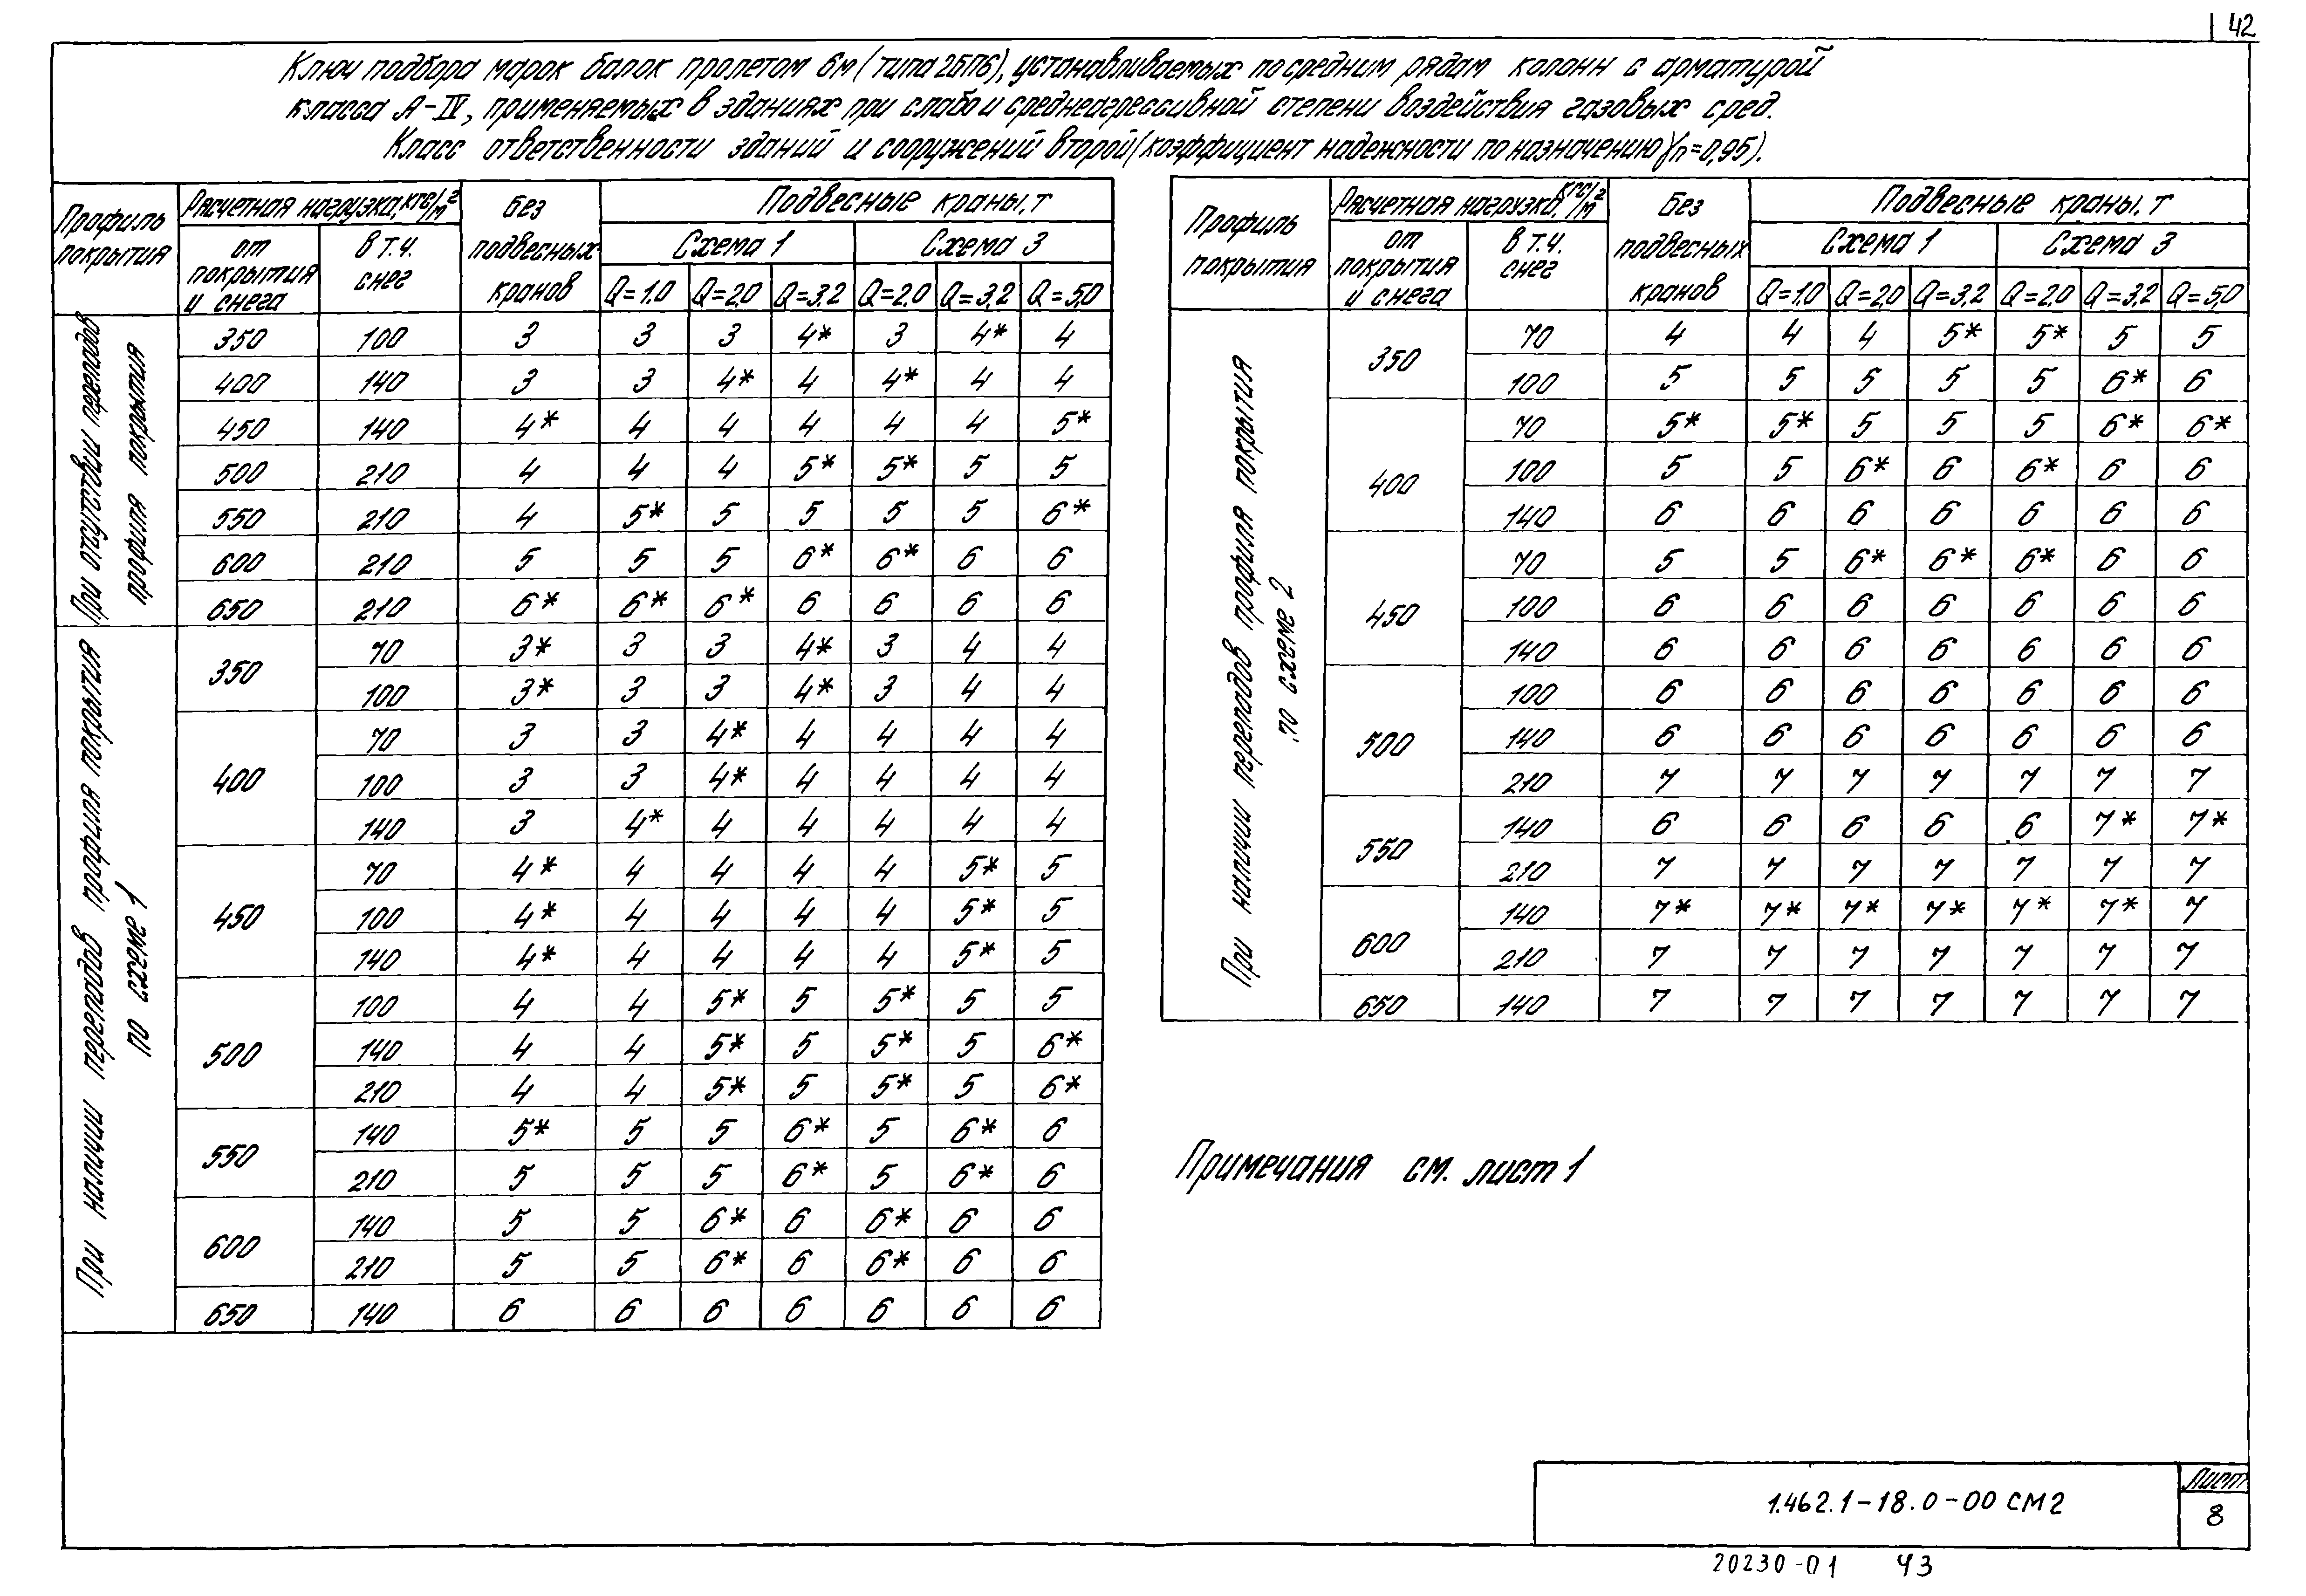 42
Ключ подбора марок балок пролетом 6м (типа 2БП6), устанавливаемых по средним рядам колонн с арматурой
класса А-IV, применяемых в зданиях при слабо и среднеагрессивной степени воздействия газовых сред.
Класс ответственности зданий и сооружений второй (коэффициент надежности по назначению γn=0,95).
Профиль покрытия | Расчетная нагрузка, кгс/м² | Без подвесных кранов | Подвесные краны, т
от покрытия и снега | в т.ч. снег | Схема 1 | Схема 3
Q=1,0 | Q=2,0 | Q=3,2 | Q=2,0 | Q=3,2 | Q=5,0
При отсутствии перепадов профиля покрытия
350 100 3 3 3 4* 3 4* 4
400 140 3 3 4* 4 4* 4 4
450 140 4* 4 4 4 4 4 5*
500 210 4 4 4 5* 5* 5 5
550 210 4 5* 5 5 5 5 6*
600 210 5 5 5 6* 6* 6 6
650 210 6* 6* 6* 6 6 6 6
При наличии перепадов профиля покрытия по схеме 1
350 70 3* 3 3 4* 3 4 4
100 3* 3 3 4* 3 4 4
400 70 3 3 4* 4 4 4 4
100 3 3 4* 4 4 4 4
140 3 4* 4 4 4 4 4
450 70 4* 4 4 4 4 5* 5
100 4* 4 4 4 4 5* 5
140 4* 4 4 4 4 5* 5
500 100 4 4 5* 5 5* 5 5
140 4 4 5* 5 5* 5 6*
210 4 4 5* 5 5* 5 6*
550 140 5* 5 5 6* 5 6* 6
210 5 5 5 6* 5 6* 6
600 140 5 5 6* 6 6* 6 6
210 5 5 6* 6 6* 6 6
650 140 6 6 6 6 6 6 6
Профиль покрытия | Расчетная нагрузка, кгс/м² | Без подвесных кранов | Подвесные краны, т
от покрытия и снега | в т.ч. снег | Схема 1 | Схема 3
Q=1,0 | Q=2,0 | Q=3,2 | Q=2,0 | Q=3,2 | Q=5,0
При наличии перепадов профиля покрытия по схеме 2
350 70 4 4 4 5* 5* 5 5
100 5 5 5 5 5 6* 6
400 70 5* 5* 5 5 5 6* 6*
100 5 5 6* 6 6* 6 6
140 6 6 6 6 6 6 6
450 70 5 5 6* 6* 6* 6 6
100 6 6 6 6 6 6 6
140 6 6 6 6 6 6 6
500 100 6 6 6 6 6 6 6
140 6 6 6 6 6 6 6
210 7 7 7 7 7 7 7
550 140 6 6 6 6 6 7* 7*
210 7 7 7 7 7 7 7
600 140 7* 7* 7* 7* 7* 7* 7
210 7 7 7 7 7 7 7
650 140 7 7 7 7 7 7 7
Примечания см. лист 1
1.462.1-18.0-00 СМ2
Лист
8
20230-01 43